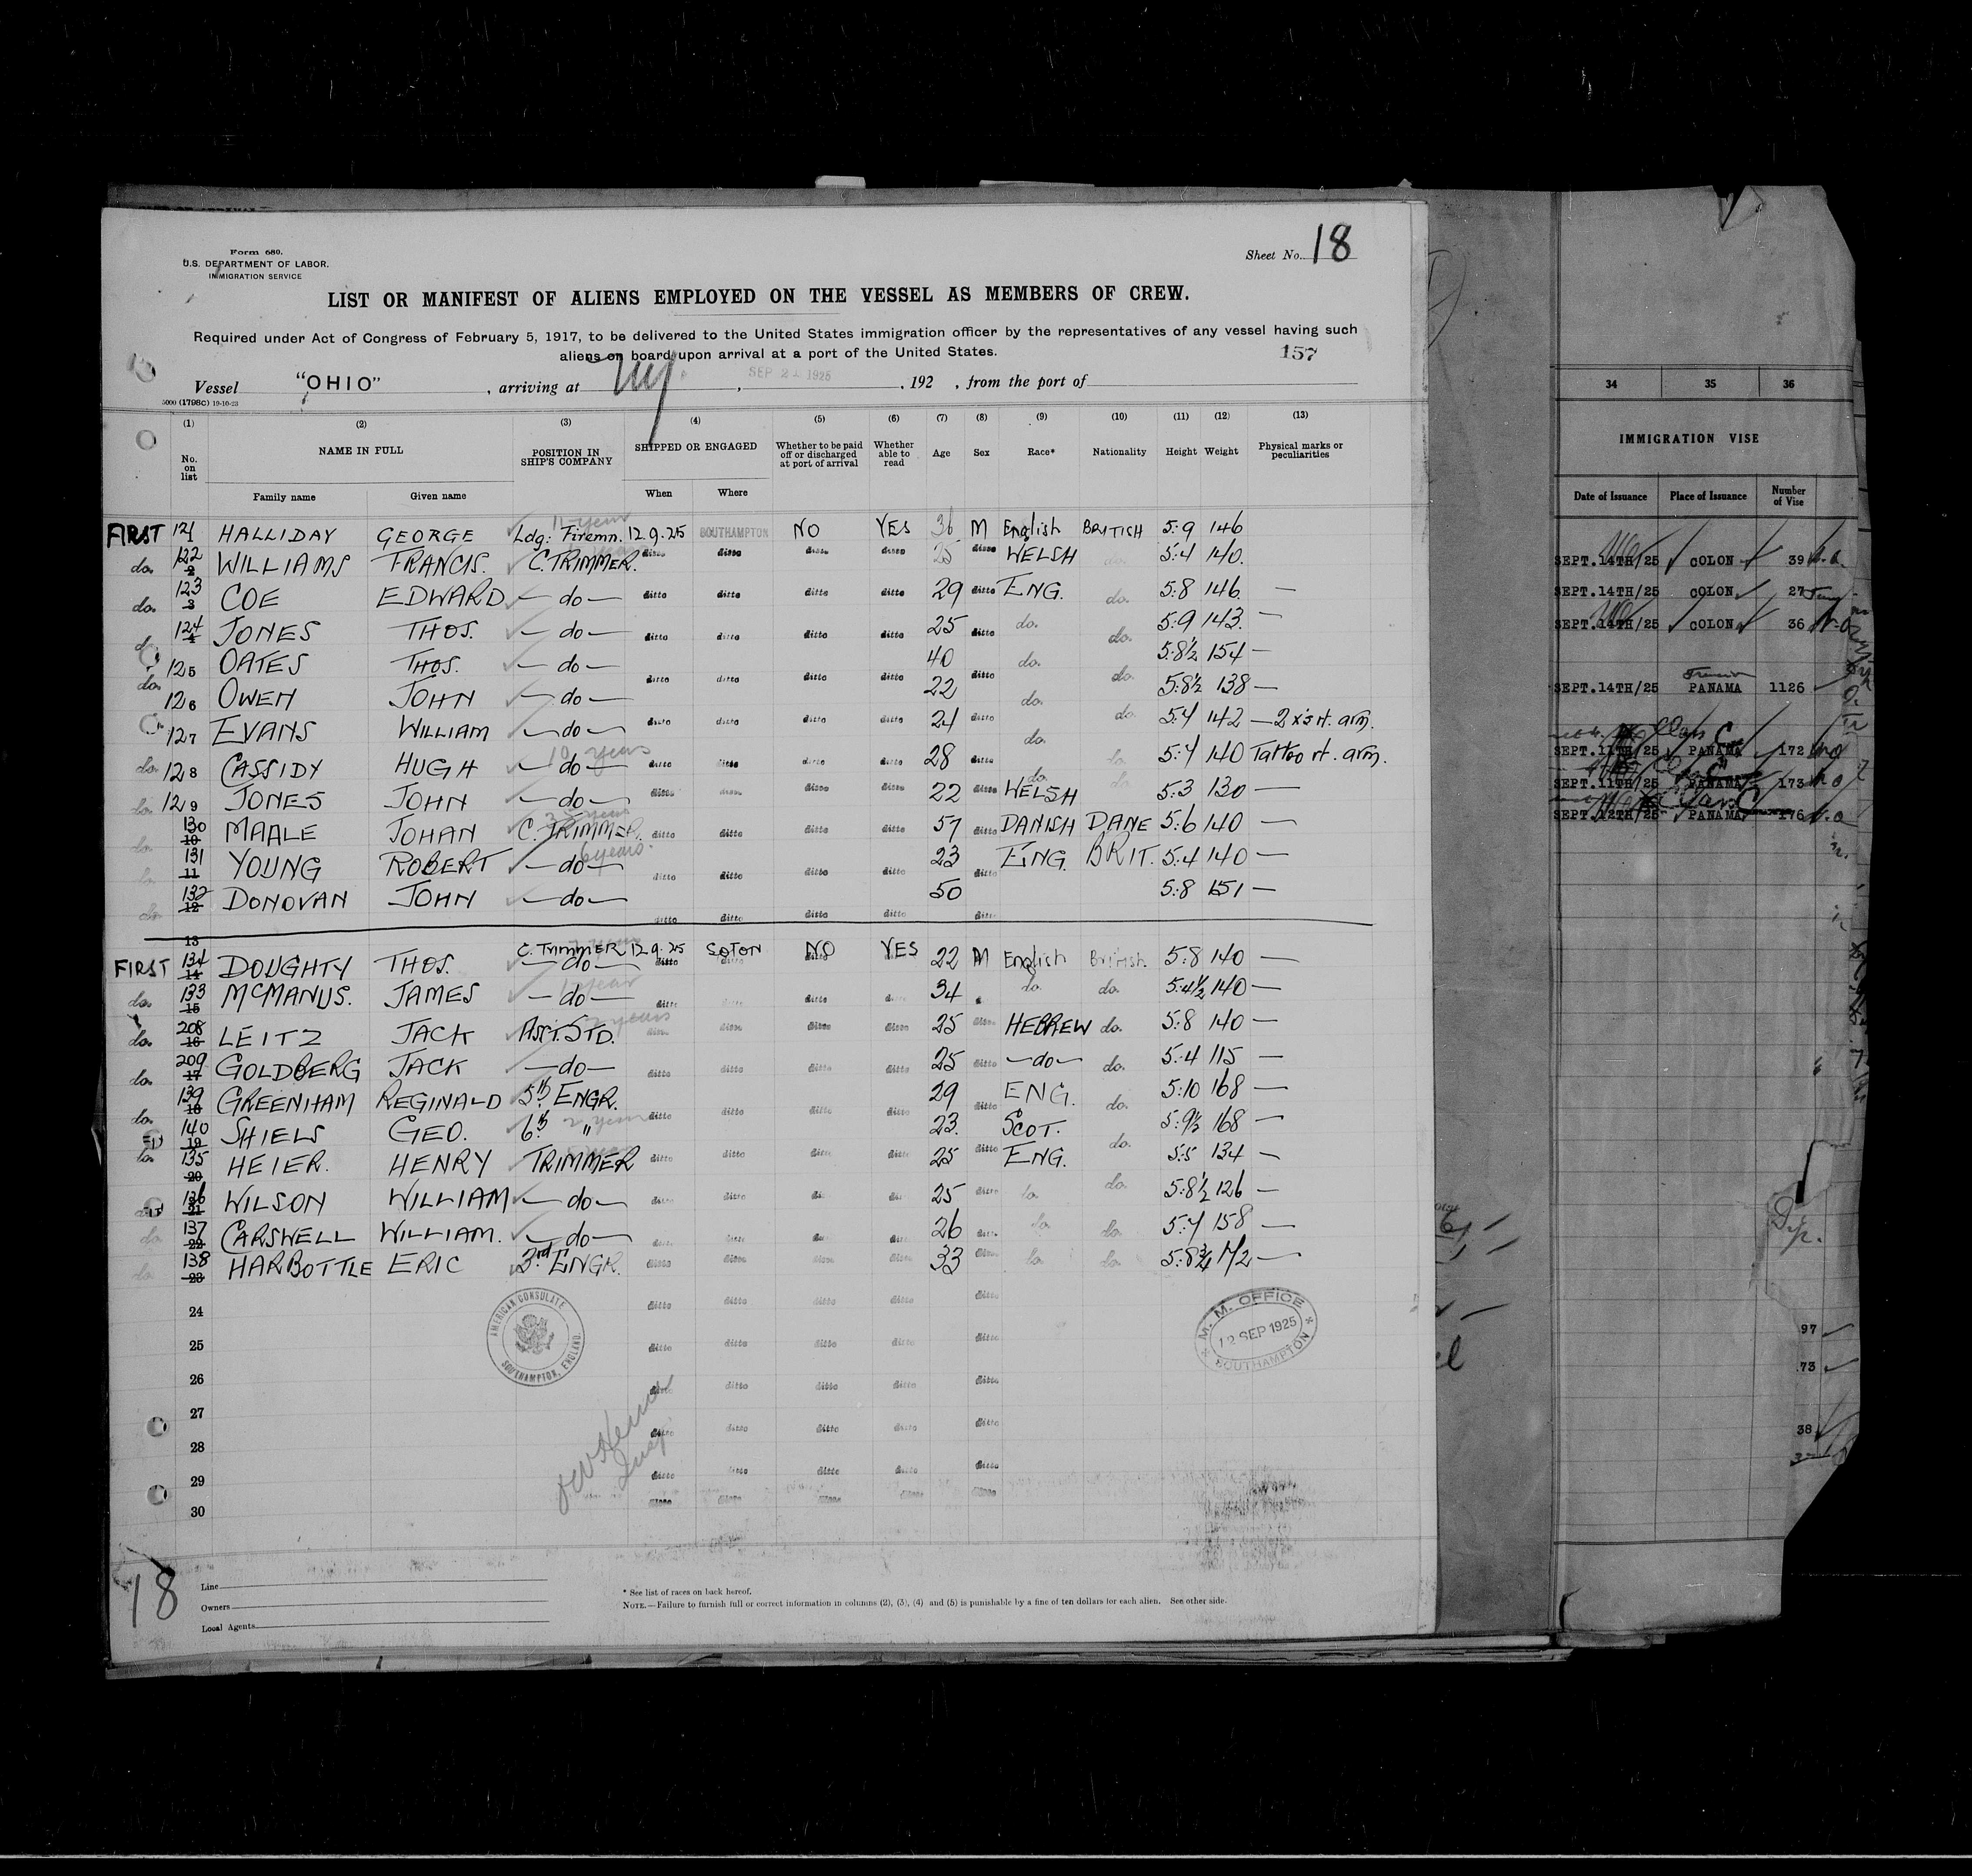 Form 680.
U.S. DEPARTMENT OF LABOR.
IMMIGRATION SERVICE
Sheet No. 18
LIST OR MANIFEST OF ALIENS EMPLOYED ON THE VESSEL AS MEMBERS OF CREW.
Required under Act of Congress of February 5, 1917, to be delivered to the United States immigration officer by the representatives of any vessel having such
aliens on board upon arrival at a port of the United States.
157
Vessel "OHIO", arriving at NY, SEP 21 1925, 192 , from the port of
5000 (1798C) 19-10-23
(1) (2) (3) (4) (5) (6) (7) (8) (9) (10) (11) (12) (13)
No. on list NAME IN FULL POSITION IN SHIP'S COMPANY SHIPPED OR ENGAGED Whether to be paid off or discharged at port of arrival Whether able to read Age Sex Race* Nationality Height Weight Physical marks or peculiarities
Family name Given name When Where
FIRST 121 HALLIDAY GEORGE Ldg: Firemn. 12.9.25 SOUTHAMPTON NO YES 36 M English BRITISH 5:9 146
do. 122 WILLIAMS FRANCIS. C. TRIMMER. ditto ditto ditto ditto 25 ditto WELSH do. 5:4 140.
do. 123 COE EDWARD — do — ditto ditto ditto ditto 29 ditto ENG. do. 5:8 146. —
do. 124 JONES THOS. — do — ditto ditto ditto ditto 25 ditto do. do. 5:9 143. —
125 OATES THOS. — do — ditto ditto ditto ditto 40 ditto do. do. 5:8½ 154 —
do. 126 OWEN JOHN — do — 22 do. 5:8½ 138 —
127 EVANS WILLIAM — do — ditto ditto ditto ditto 21 ditto do. do. 5:7 142 — 2 x's rt. arm.
do. 128 CASSIDY HUGH — do — ditto ditto ditto ditto 28 ditto do. do. 5:7 140 Tattoo rt. arm.
do. 129 JONES JOHN — do — ditto ditto ditto ditto 22 WELSH do. 5:3 130 —
do. 130 MAALE JOHAN C. TRIMMER. ditto ditto ditto ditto 57 ditto DANISH DANE 5:6 140 —
do. 131 YOUNG ROBERT — do — 6 years. ditto ditto ditto ditto 23 ditto ENG. BRIT. 5:4 140 —
do. 132 DONOVAN JOHN — do — ditto ditto ditto ditto 50 ditto 5:8 151 —
13 C. TRIMMER 12.9.25 SOTON NO YES
FIRST 134 DOUGHTY THOS. — do — ditto ditto ditto 22 M English British. 5:8 140 —
do. 133 MCMANUS. JAMES — do — ditto ditto ditto ditto 34 do. do. 5:4½ 140 —
do. 208 LEITZ JACK ASST. STD. ditto ditto ditto ditto 25 ditto HEBREW do. 5:8 140 —
do. 209 GOLDBERG JACK — do — ditto ditto ditto ditto 25 ditto — do — do. 5:4 115 —
do. 139 GREENHAM REGINALD 5th ENGR. 29 ditto ENG. do. 5:10 168 —
140 SHIELS GEO. 6th " ditto ditto ditto ditto 23. SCOT. do. 5:9½ 168 —
do. 135 HEIER. HENRY TRIMMER ditto ditto ditto ditto 25 ditto ENG. 5:5 134 —
136 WILSON WILLIAM — do — ditto ditto ditto ditto 25 ditto do. do. 5:8½ 126 —
do. 137 CARSWELL WILLIAM. — do — ditto ditto ditto ditto 26 ditto do. do. 5:7 158 —
do. 138 HARBOTTLE ERIC 3rd ENGR. ditto ditto ditto ditto 33 ditto do. do. 5:8¾ 172 —
24 ditto ditto ditto ditto ditto
25 ditto ditto ditto ditto ditto
26 ditto ditto ditto ditto ditto
27 ditto ditto ditto ditto ditto
28 ditto
29 ditto ditto ditto ditto ditto
30 ditto ditto ditto ditto ditto
AMERICAN CONSULATE
SOUTHAMPTON, ENGLAND.
M. M. OFFICE
12 SEP 1925
SOUTHAMPTON
18
Line
Owners
Local Agents
* See list of races on back hereof.
NOTE.—Failure to furnish full or correct information in columns (2), (3), (4) and (5) is punishable by a fine of ten dollars for each alien. See other side.
34 35 36
IMMIGRATION VISE
Date of Issuance Place of Issuance Number of Vise
SEPT.14TH/25 COLON 39
SEPT.14TH/25 COLON 27
SEPT.14TH/25 COLON 36
SEPT.14TH/25 PANAMA 1126
SEPT.11TH/25 PANAMA 172
SEPT.11TH/25 PANAMA 173
SEPT.12TH/25 PANAMA 176
97
73
38